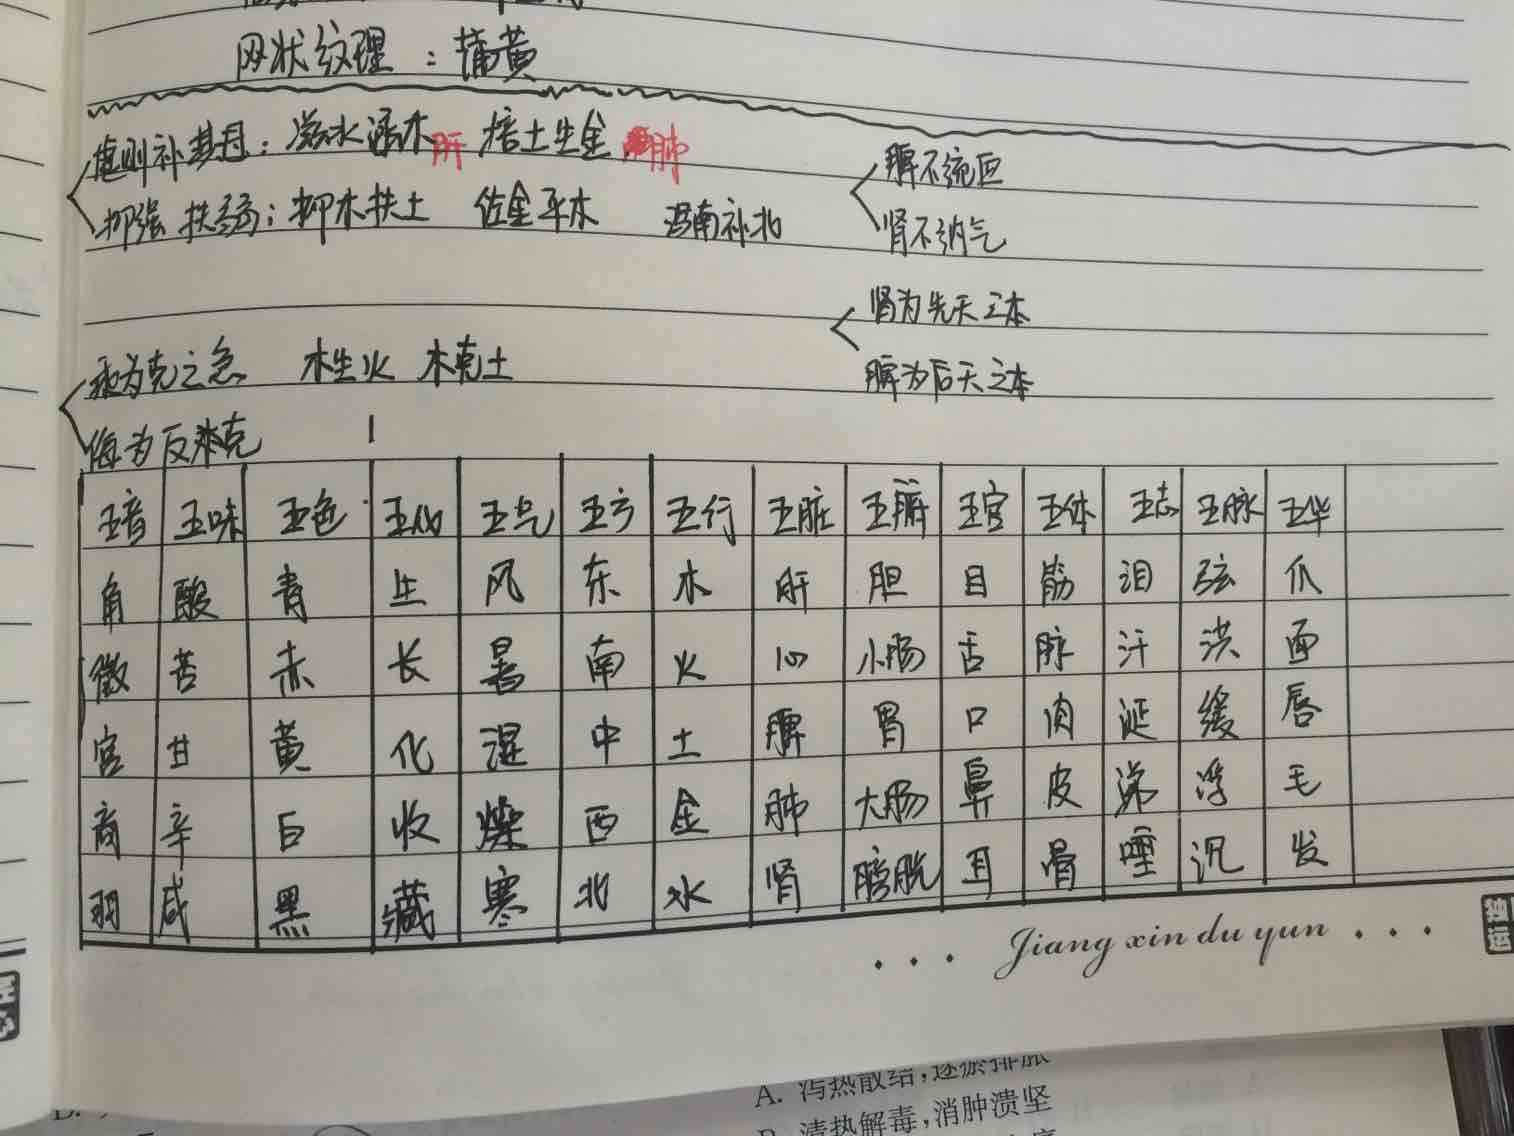 网状纹理：蒲黄
虚则补其母：滋水涵木 肝 培土生金 肺
抑强扶弱：抑木扶土 佐金平木 泻南补北
脾不统血
肾不纳气
肾为先天之本
脾为后天之本
乘为克之急 木生火 木克土
侮为反来克
五音 五味 五色 五化 五气 五方 五行 五脏 五腑 五官 五体 五志 五脉 五华
角 酸 青 生 风 东 木 肝 胆 目 筋 泪 弦 爪
徵 苦 赤 长 暑 南 火 心 小肠 舌 脉 汗 洪 面
宫 甘 黄 化 湿 中 土 脾 胃 口 肉 涎 缓 唇
商 辛 白 收 燥 西 金 肺 大肠 鼻 皮 涕 浮 毛
羽 咸 黑 藏 寒 北 水 肾 膀胱 耳 骨 唾 沉 发
... Jiang xin du yun ...
独运
匠心
A. 泻热散结，逐瘀排脓
清热解毒，消肿溃坚